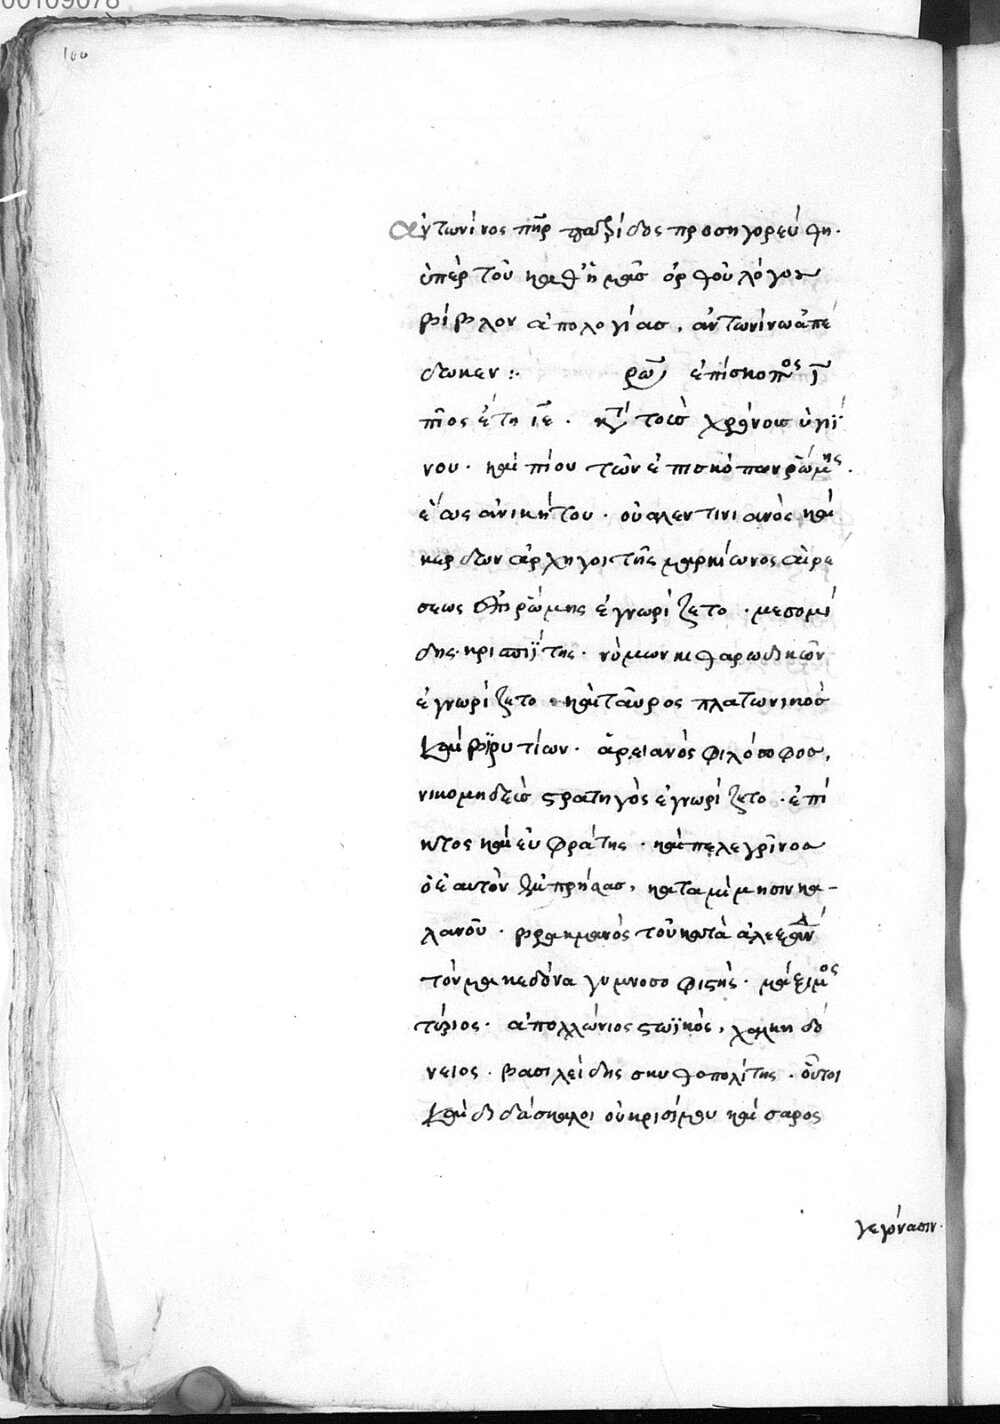 00109078
100
ἀντωνίνος πη̅ρ πατρίδος προσηγορεύθη.
ὑπὲρ τοῦ καθ' ἡμᾶς ὀρθοῦ λόγου
βίβλον ἀπολογίας, ἀντωνίνω ἀπέ
δωκεν :· ῥω ἐπίσκοπος ι̅
πίος ἔτη ιε. κατὰ τοὺς χρόνους ὑγιΐ
νου. καὶ πίου τῶν ἐπισκόπων ῥώμης.
ἕως ἀνικήτου. οὐαλεντινιανὸς καὶ
κέρδων ἀρχηγοὶ τῆς μαρκίωνος αἱρέ
σεως ἐπὶ ῥώμης ἐγνωρίζετο. μεσομή
δης. κριασϊΐτης. νόμων κιθαρωδικῶν
ἐγνωρίζετο. καὶ ταῦρος πλατωνικὸς
καὶ βϊρυτίων. ἀρειανὸς φιλόσοφος,
νικομηδεὺς στρατηγὸς ἐγνωρίζετο. ἐπί
κτος καὶ εὐφράτης. καὶ πελεγρῖνος
ὁ ἑαυτὸν ἐμπρήσας, κατα μίμησιν κα-
λανοῦ. βραχμανὸς τοῦ κατὰ ἀλέξανδ
τὸν μακεδόνα γυμνοσοφιστής. μάξιμος
τύριος. ἀπολλώνιος στωϊκὸς, χαλκηδό
νειος. βασιλείδης σκυθοπολίτης. οὗτοι
καὶ διδάσκαλοι οὐκρισίμου καίσαρος
γεγόνασιν.